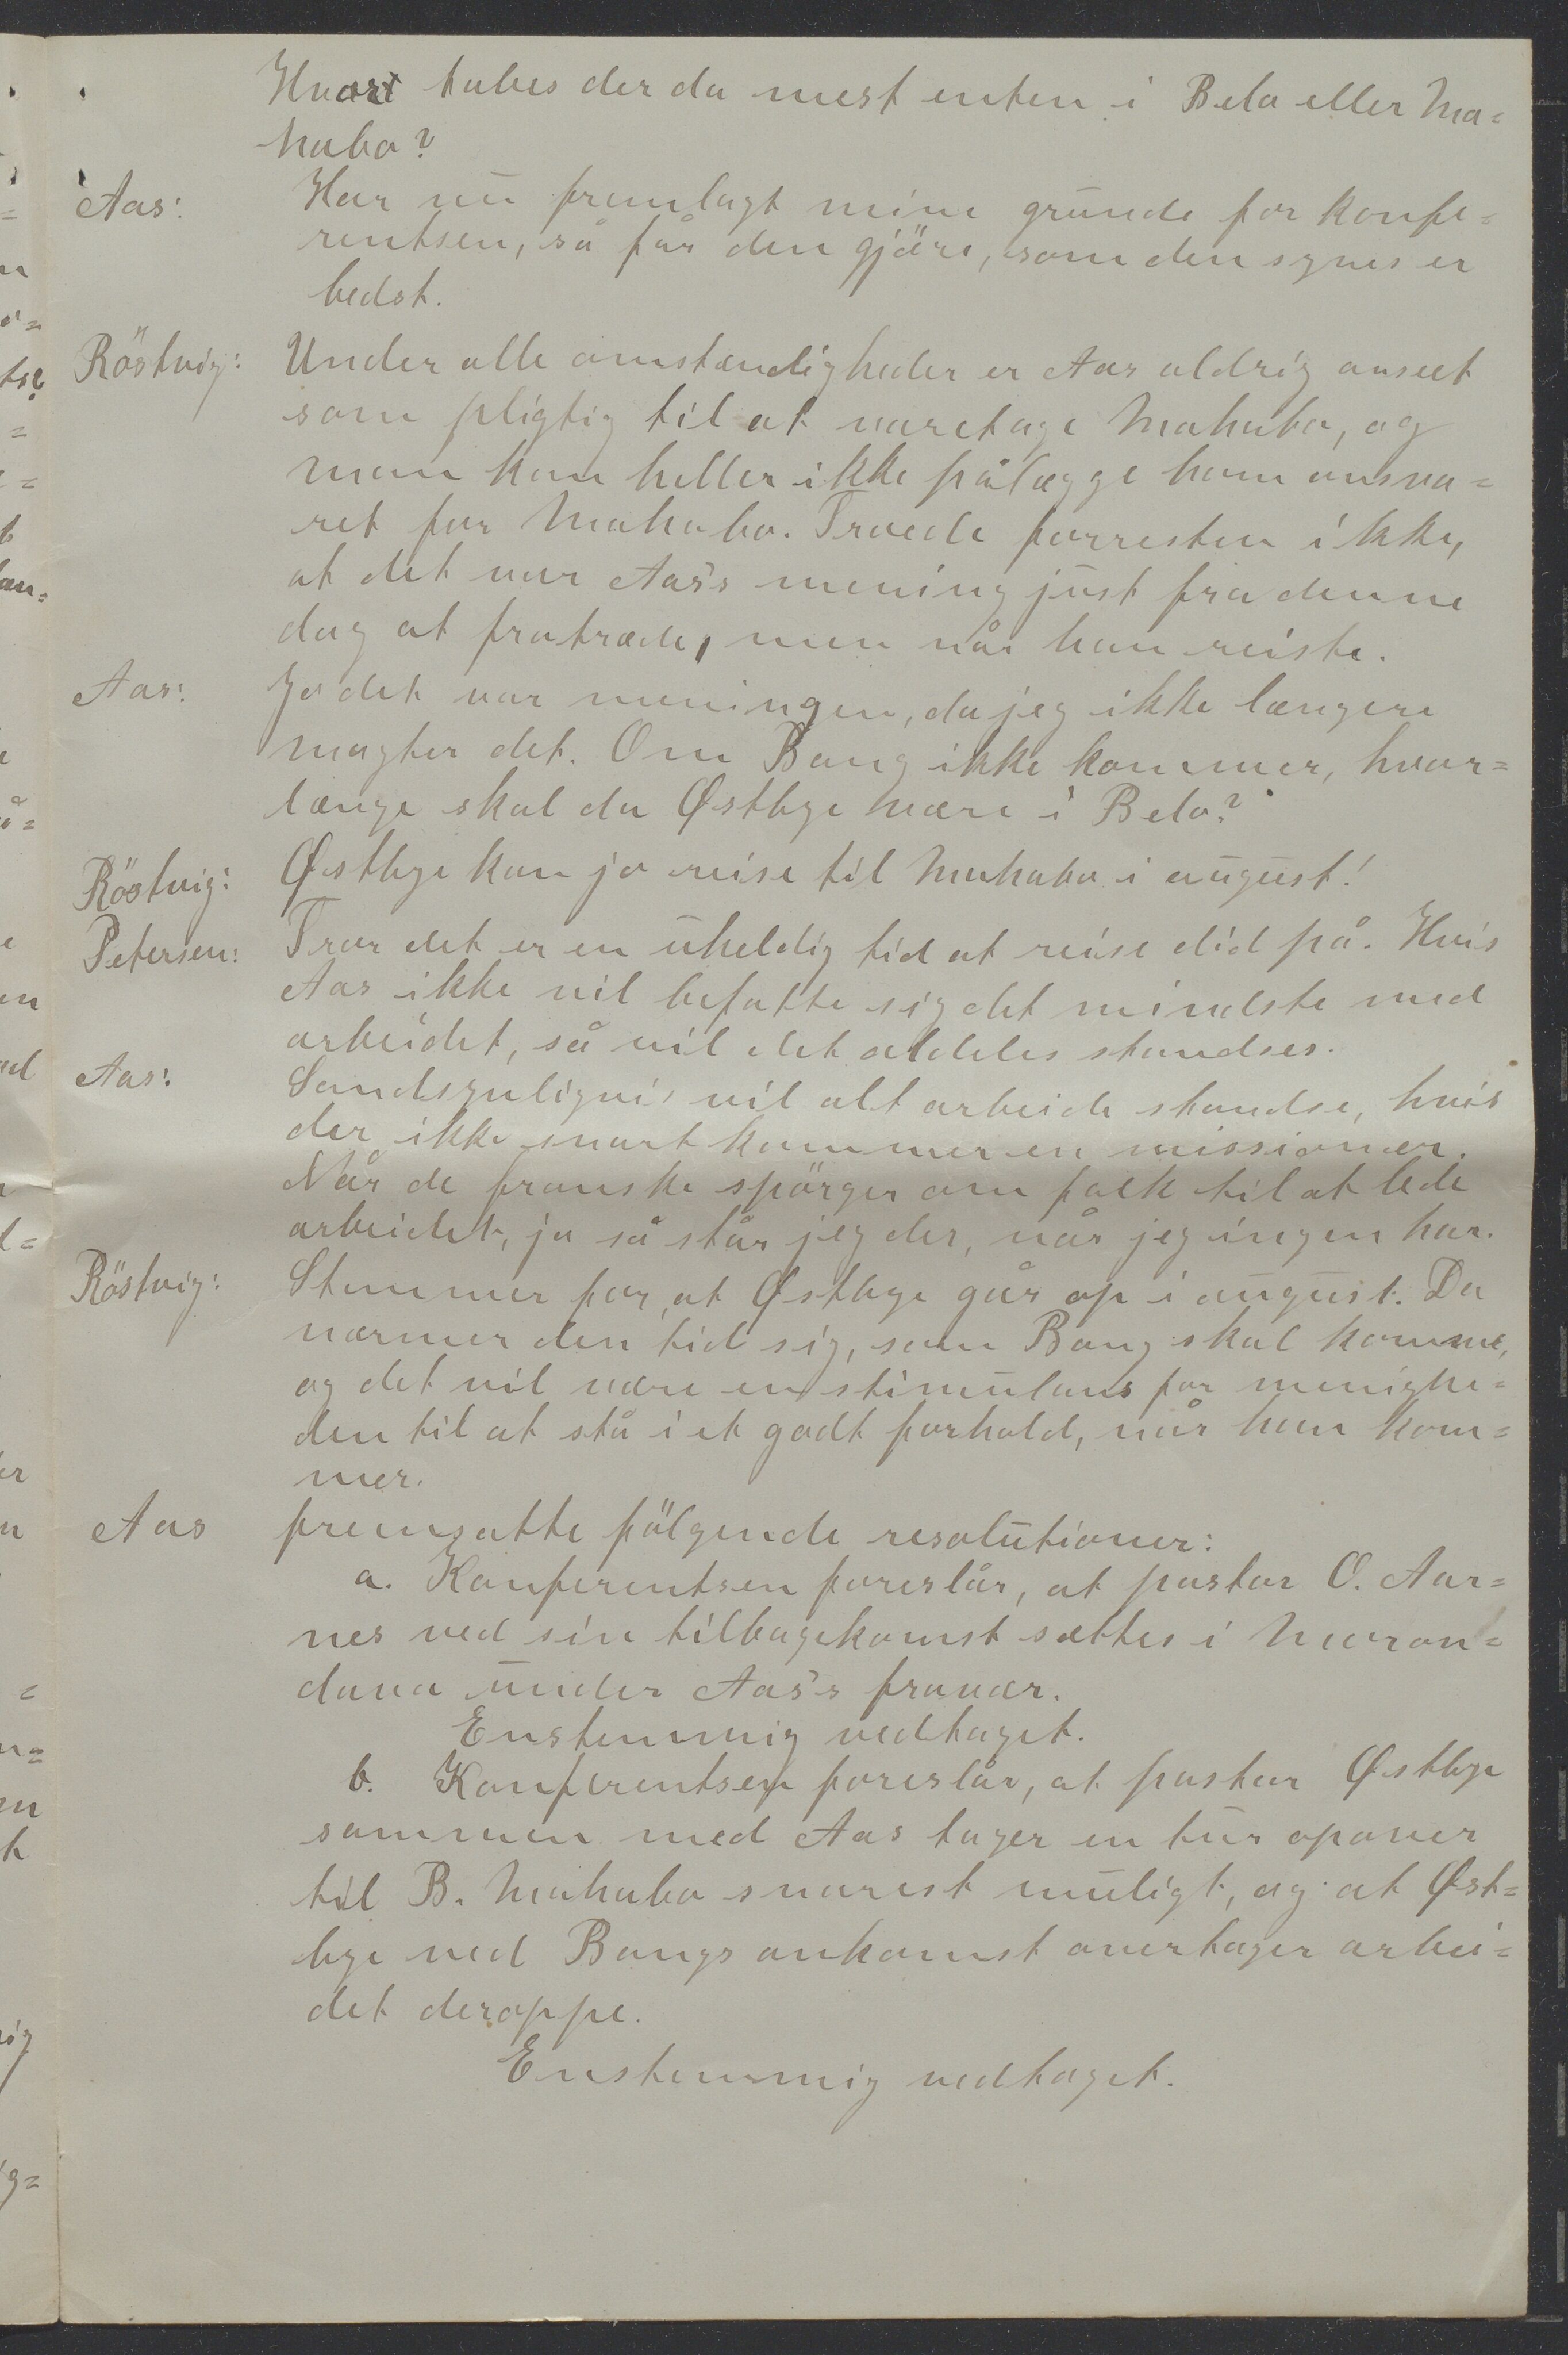 Hvort tabes der da mest enten i Belo eller Ma=
habo?
Aas: Har nū fremlagt mine grūnde for konfe=
rentsen, så får den gjöre, som den synes er
bedst.
Röstvig: Under alle omstændigheder er Aas aldrig anseet
som pligtig til at varetage Mahabo, og
man kan heller ikke pålægge ham ansva=
ret for Mahabo. Troede forresten ikke,
at det var Aas's mening jūst fra denne
dag at fratræde, men når han reiste.
Aas: Jo det var meningen, da jeg ikke længere
magter det. Om Bang ikke kommer, hvor=
længe skal da Østbye være i Belo?
Röstvig: Østbye kan jo reise til Mahabo i aūgūst!
Petersen: Tror det er en ūheldig tid at reise did på. Hvis
Aas ikke vil befatte sig det mindste med
arbeidet, så vil det aldeles standses.
Aas: Sandsynligvis vil alt arbeide standse, hvis
der ikke snart kommer en missionær.
Når de franske spörger om folk til at lede
arbeidet, ja så står jeg der, når jeg ingen har.
Röstvig: Stemmer for, at Østbye går op i aūgūst. Da
nærmer den tid sig, som Bang skal komme,
og det vil være en stimūlans for menighe=
den til at stå i et godt forhold, når han kom=
mer.
Aas fremsatte fölgende resolūtioner:
a. Konferentsen foreslår, at pastor O. Aar=
nes ved sin tilbagekomst sættes i Moron=
dava ūnder Aas's fravær.
Enstemmig vedtaget.
b. Konferentsen foreslår, at pastor Østbye
sammen med Aas tager en tūr opover
til B. Mahabo snarest mūligt, og at Øst=
bye ved Bangs ankomst overtager arbei=
det deroppe.
Enstemmig vedtaget.